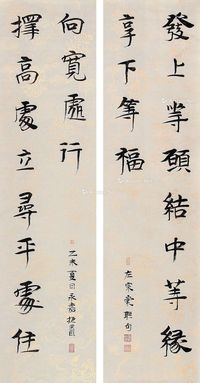 發上等願結中等緣
享下等福
左宗棠聯句
擇高處立尋平處住
向寬處行
乙未夏日永嘉